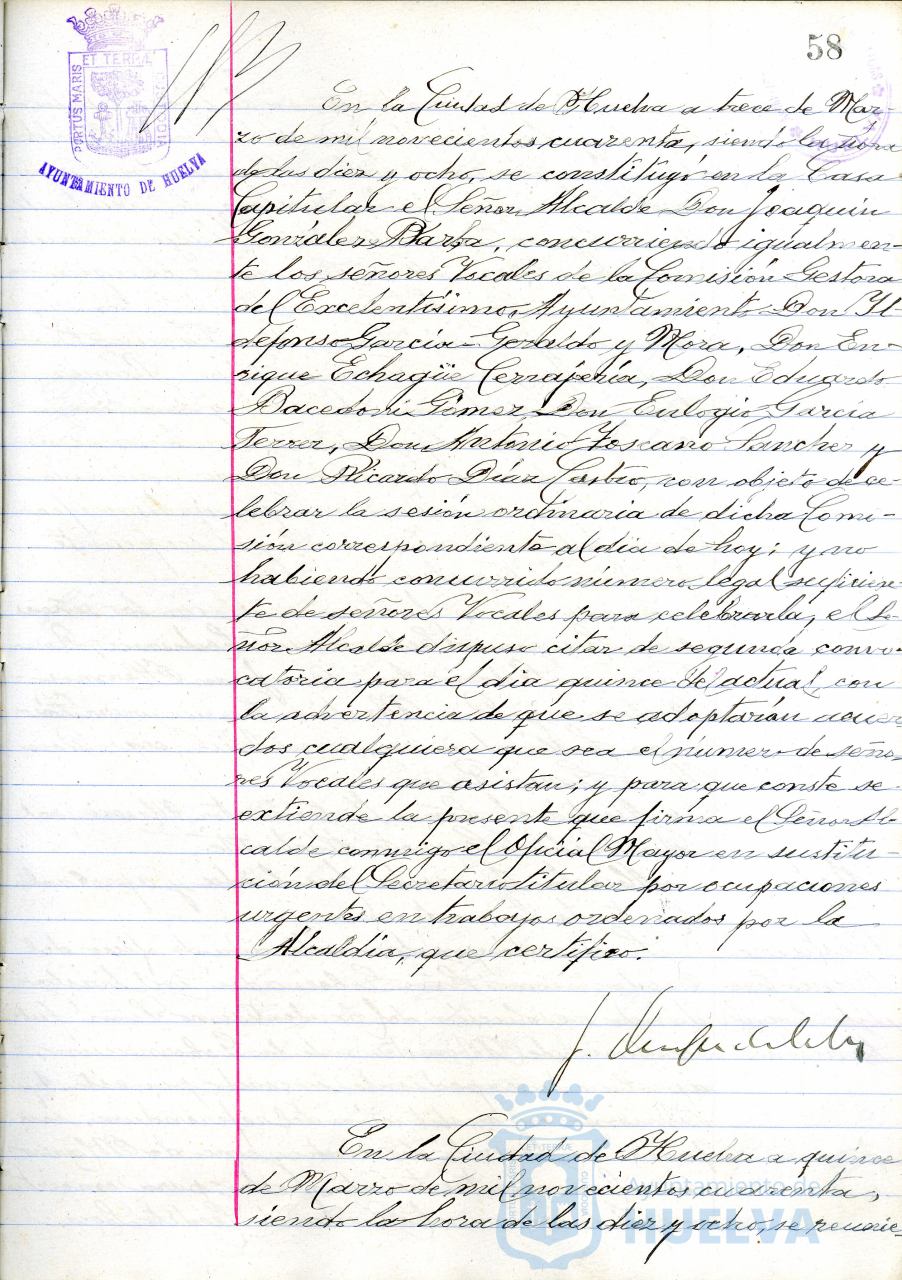 58
PORTUS MARIS
ET TERRÆ
AYUNTAMIENTO DE HUELVA
En la Ciudad de Huelva a trece de Mar-
zo de mil novecientos cuarenta, siendo la hora
de las diez y ocho, se constituyó en la Casa
Capitular el Señor Alcalde Don Joaquín
González Barba, concurriendo igualmen-
te los señores Vocales de la Comisión Gestora
del Excelentísimo Ayuntamiento Don Il-
defonso García-Geraldo y Mora, Don En-
rique Echagüe Cerrajería, Don Eduardo
Bacedoni Gómez, Don Eulogio García
Ferrer, Don Antonio Toscano Sánchez y
Don Ricardo Díaz Castro, con objeto de ce-
lebrar la sesión ordinaria de dicha Comi-
sión correspondiente al dia de hoy; y no
habiendo concurrido número legal suficien-
te de señores Vocales para celebrarla, el Se-
ñor Alcalde dispuso citar de segunda convo-
catoria para el dia quince del actual, con
la advertencia de que se adoptarán acuer-
dos cualquiera que sea el número de seño-
res Vocales que asistan; y para que conste se
extiende la presente que firma el Señor Al-
calde conmigo el Oficial Mayor en sustitu-
ción del Secretario titular por ocupaciones
urgentes en trabajos ordenados por la
Alcaldía, que certifico.
En la Ciudad de Huelva a quince
de Marzo de mil novecientos cuarenta,
siendo la hora de las diez y ocho, se reunie-
Ayuntamiento de
HUELVA